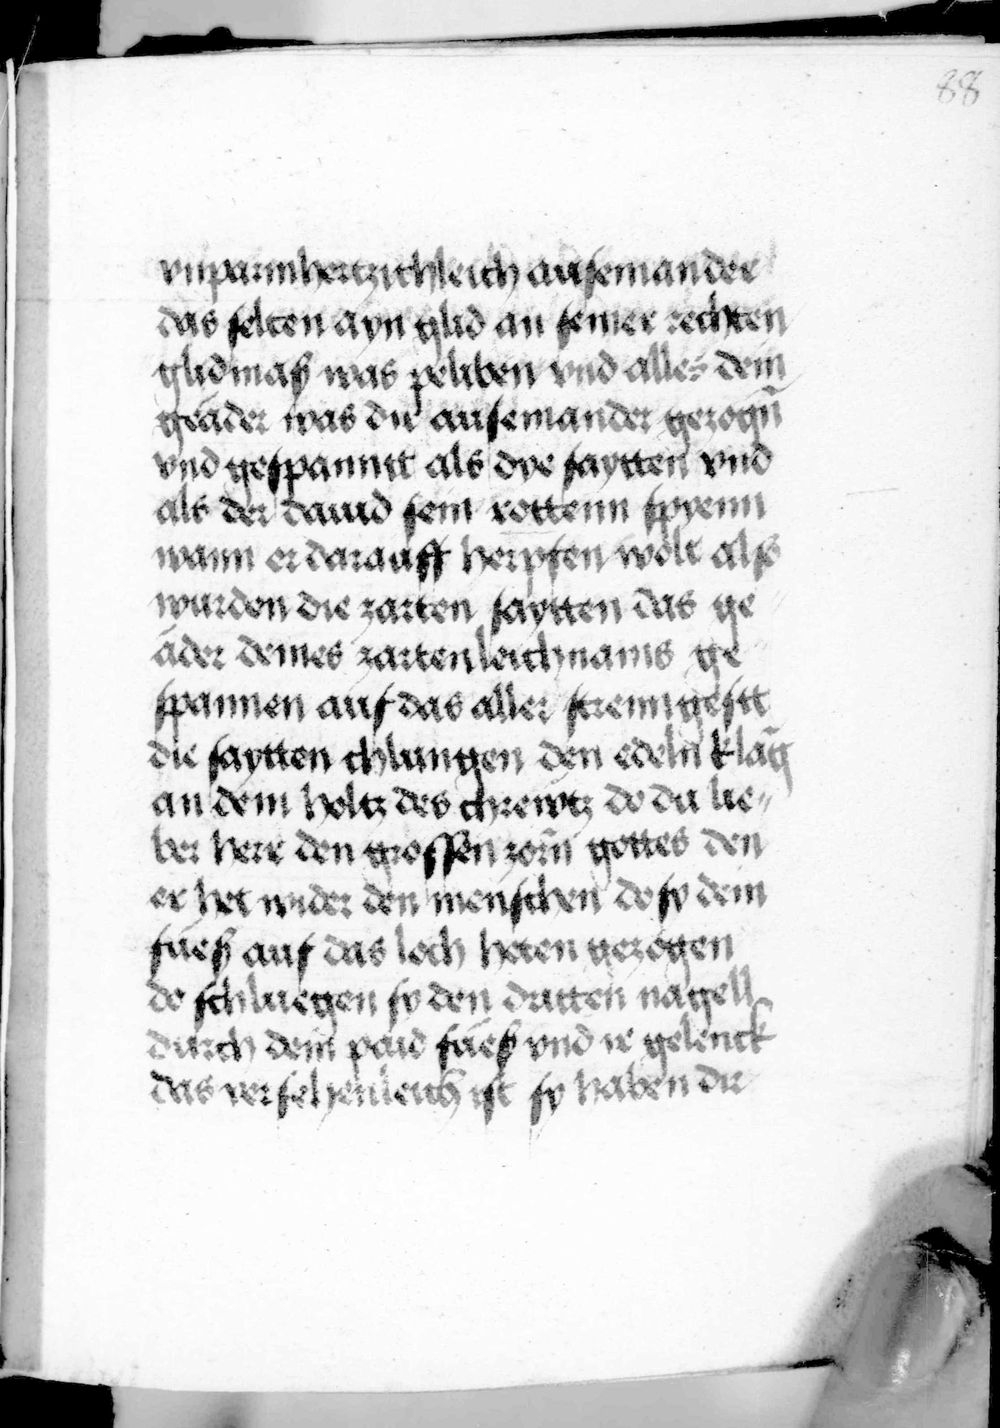 88
vnparmhertzichleich auseinander
das selten ayn glid an seiner rechten
glidmaß was peliben vnd alles dein
geäder was dir auseinander gezogn̄
vnd gespanntt als dye saytten vnd
als der dauid sein rottenn spyenn
wann er darauff herpfen wolt also
wurden die zarten saytten das ge
äder deines zarten leichnams ge
spannen auf das aller strenngestt
die saytten chlungen den edeln klāg
an dem holtz des chrewtz do du lie-
ber herr den grossen zorn̄ gottes den
er het wider den menschen do sy dein
füeß auf das loch heten gezogen
do schluegen sy den dritten nagell
durch dein paid füeß vnd ir gelenck
das versehenleich ist sy haben dir